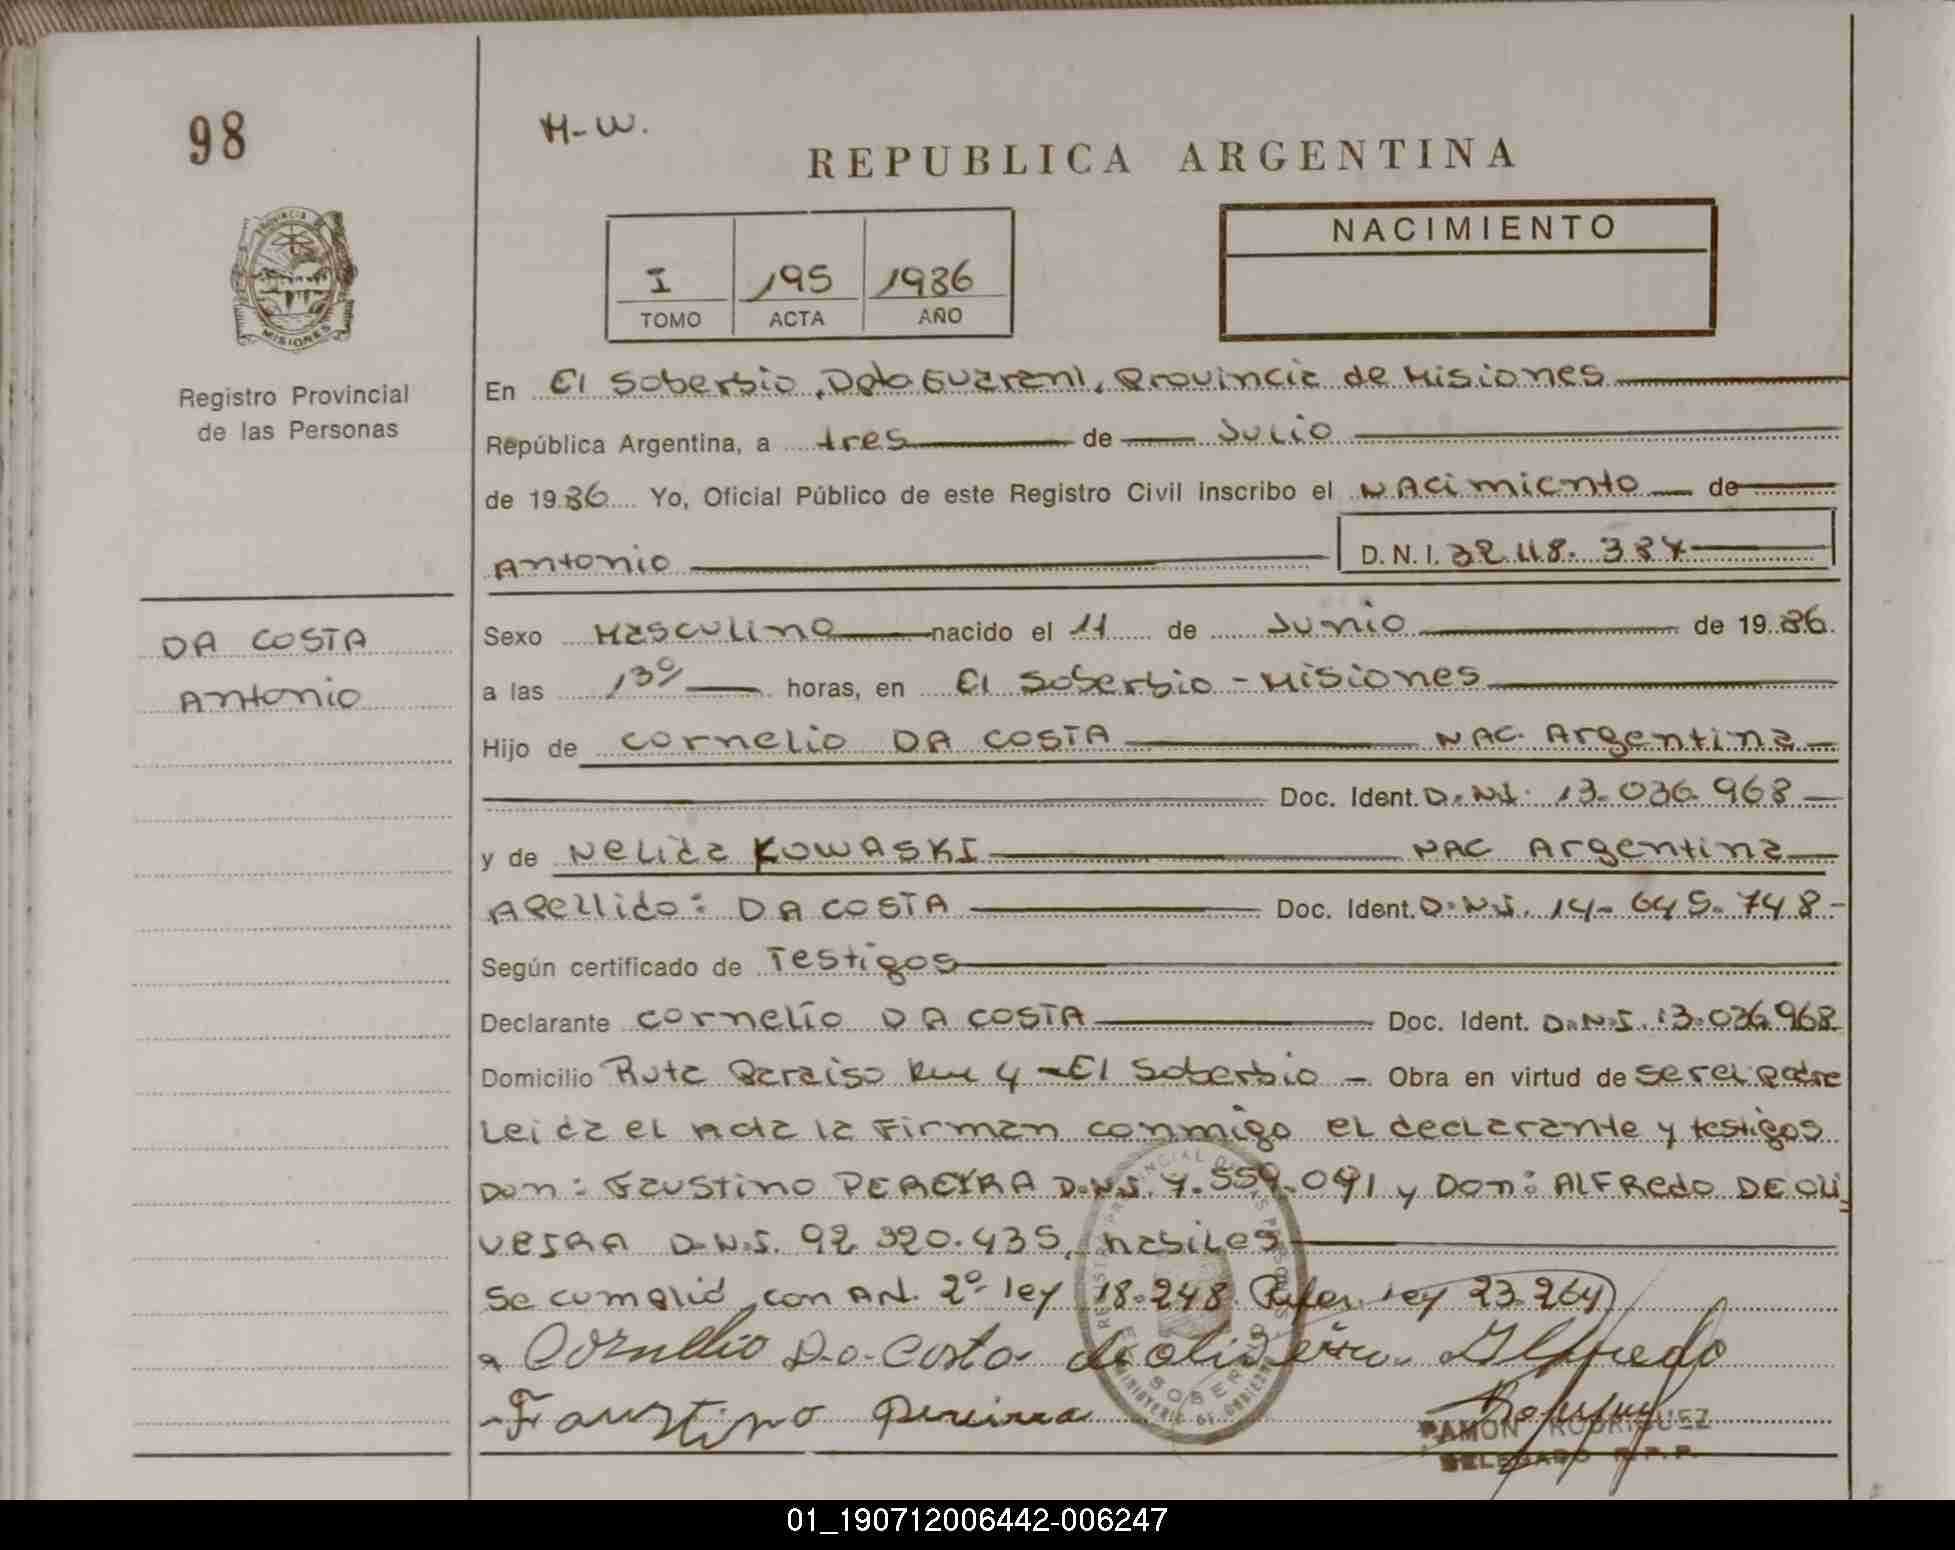 98
H-W.
REPUBLICA ARGENTINA
NACIMIENTO
I 195 1986
TOMO ACTA AÑO
PROVINCIA DE MISIONES
Registro Provincial
de las Personas
En El Soberbio, Dpto Guarani, Provincia de Misiones
República Argentina, a tres de Julio
de 1986 Yo, Oficial Público de este Registro Civil inscribo el NAcimiento de
Antonio D.N.I. 32.118.384
DA COSTA
Antonio
Sexo Masculino nacido el 11 de Junio de 1986.
a las 13º horas, en El Soberbio - Misiones
Hijo de Cornelio DA COSTA NAC. Argentina
Doc. Ident. D.N.I. 13.036.968
y de Nelida KOWASKI NAC Argentina
Apellido: DA COSTA Doc. Ident. D.N.I. 14.645.748
Según certificado de Testigos
Declarante Cornelio DA COSTA Doc. Ident. D.N.I. 13.036.968
Domicilio Ruta Paraiso Km 4 - El Soberbio - Obra en virtud de ser el padre
Leida el Acta la Firman conmigo el declarante y testigos
Don: Faustino PEREYRA D.N.I. 7.559.091 y Don: ALFRedo DE OLI
VEIRA D.N.I. 92.320.435, habiles
Se cumplió con Art. 2º ley 18.248 Refer. ley 23.264
Cornelio Da Costa de oliveira Alfredo
Faustino Pereira
RAMON RODRIGUEZ
DELEGADO R.P.P.
01_190712006442-006247